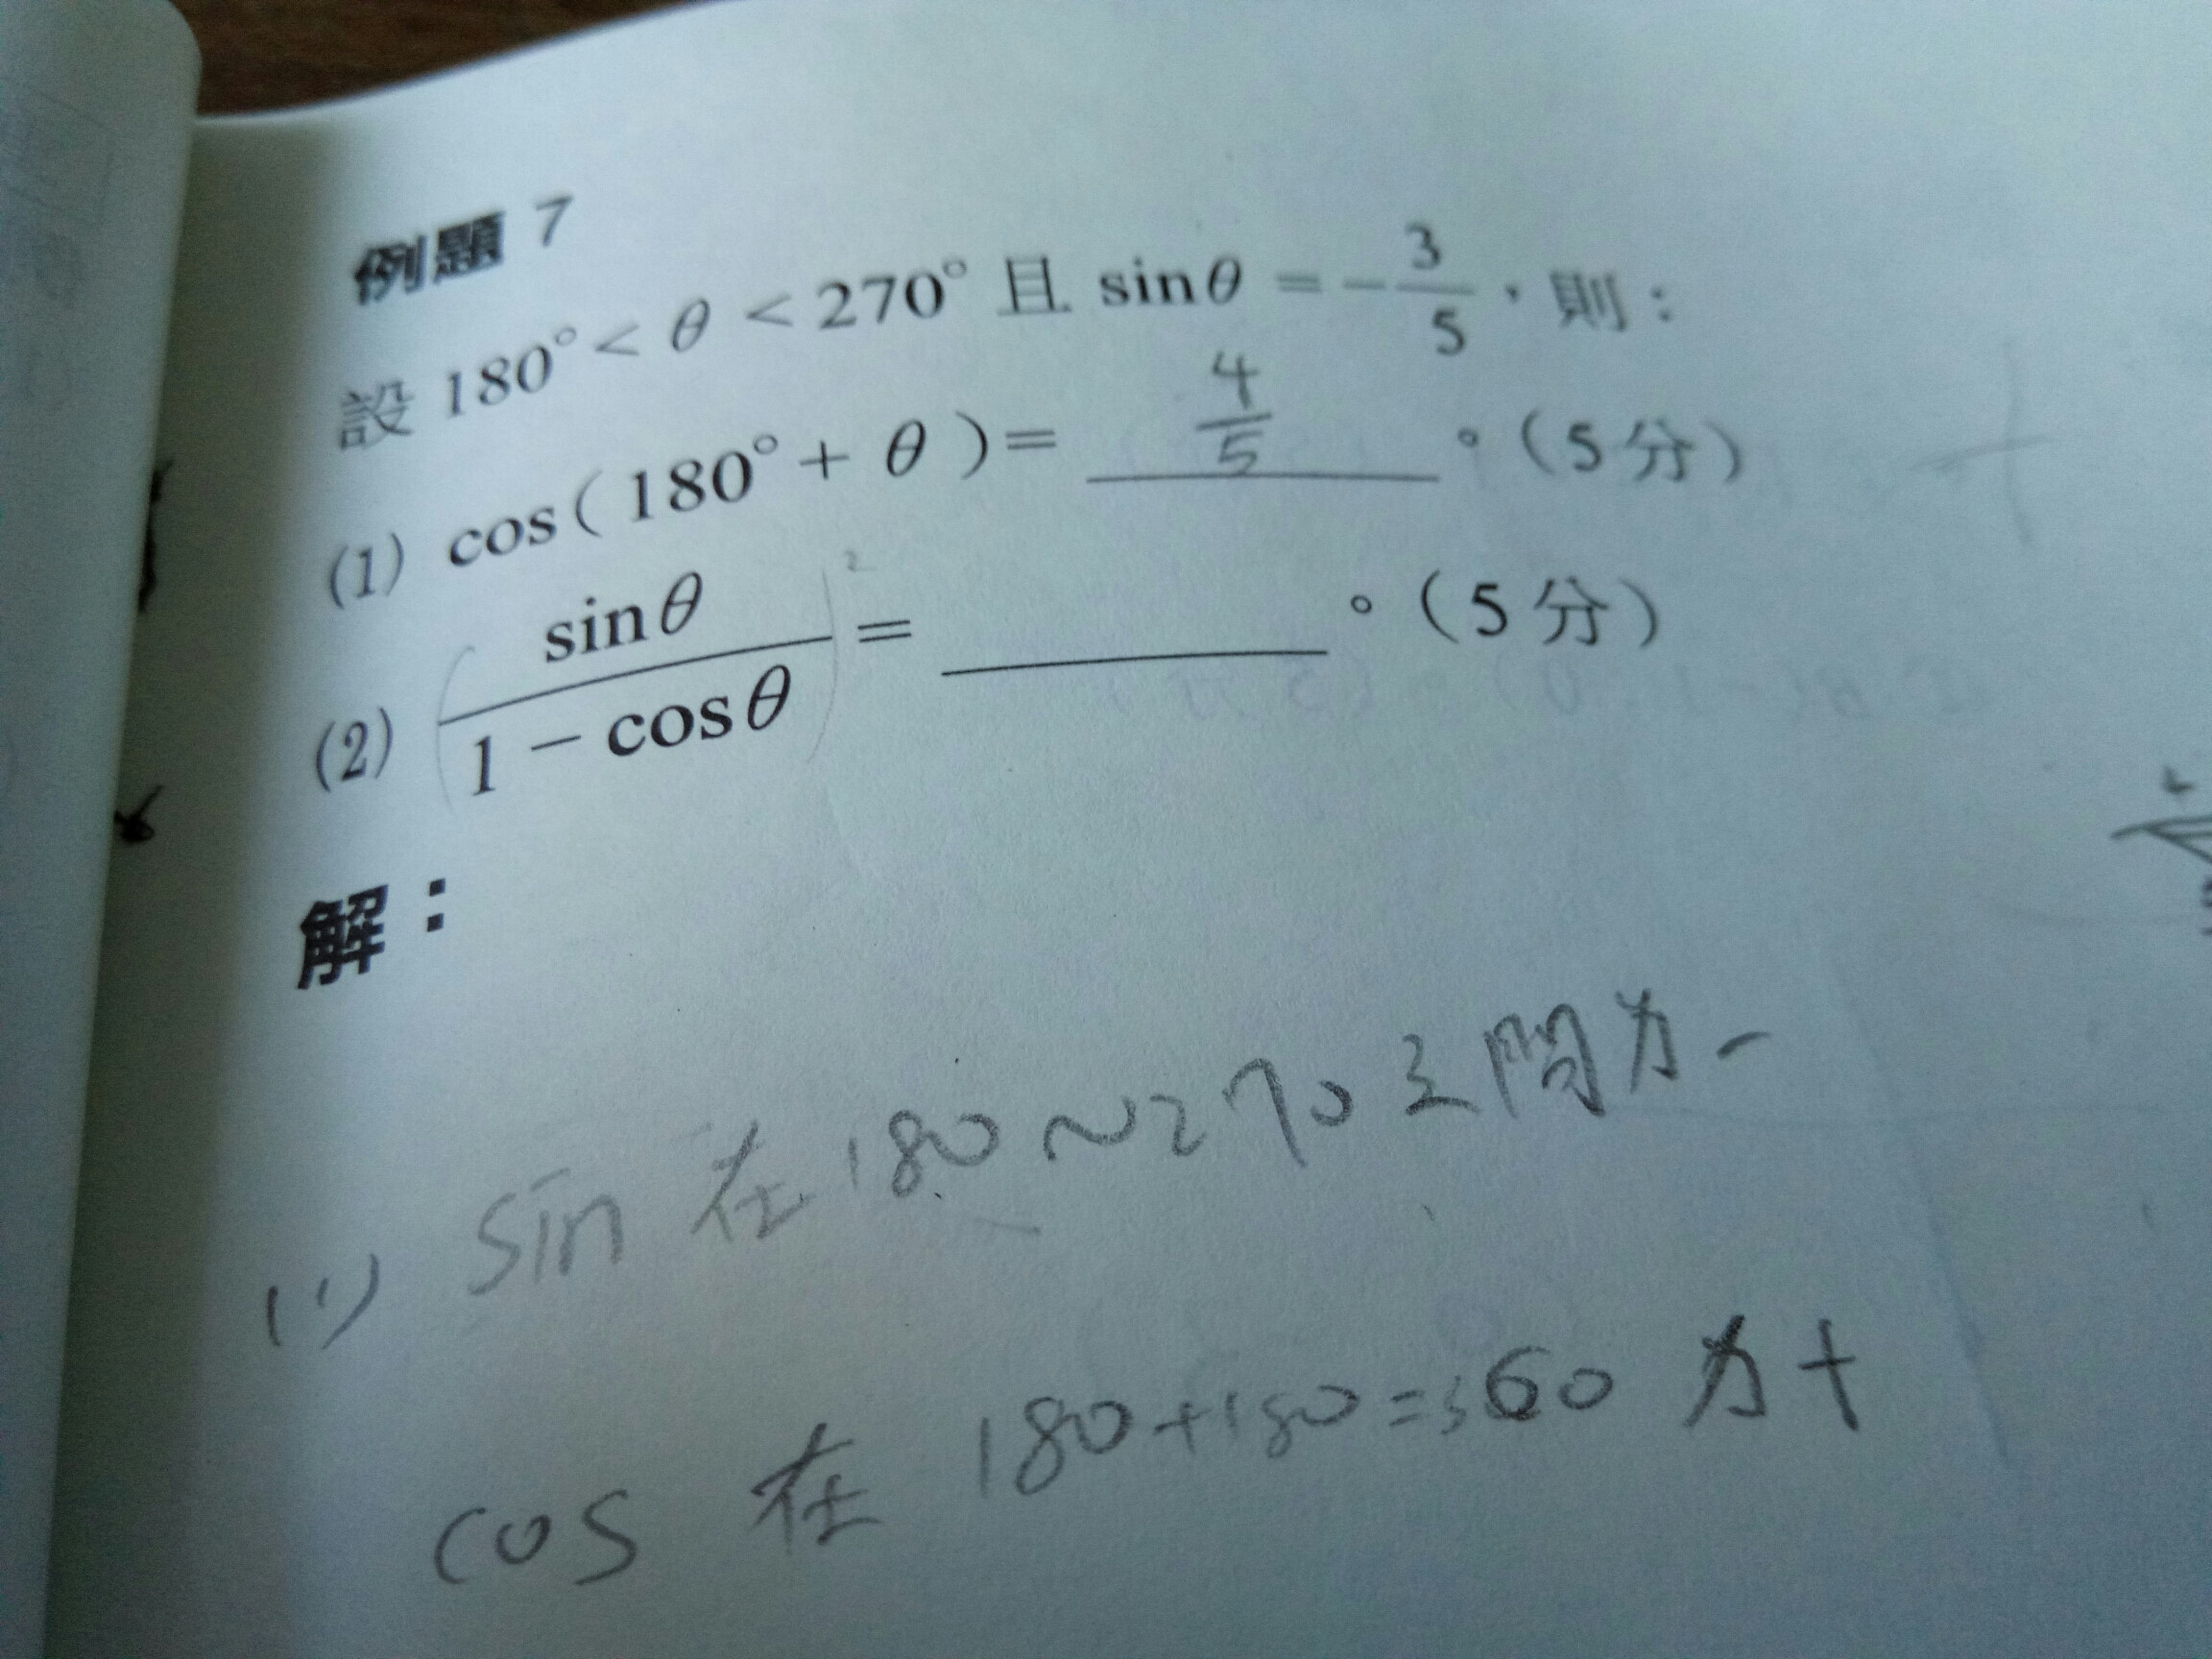 例題 7
設 180° < θ < 270° 且 sinθ = -3/5，則：
(1) cos(180° + θ) = 4/5 。(5分)
(2) (sinθ/(1 - cosθ))² = ______ 。(5分)
解：
(1) sin 在 180 ~ 270 之間为 -
cos 在 180+180=360 为 +